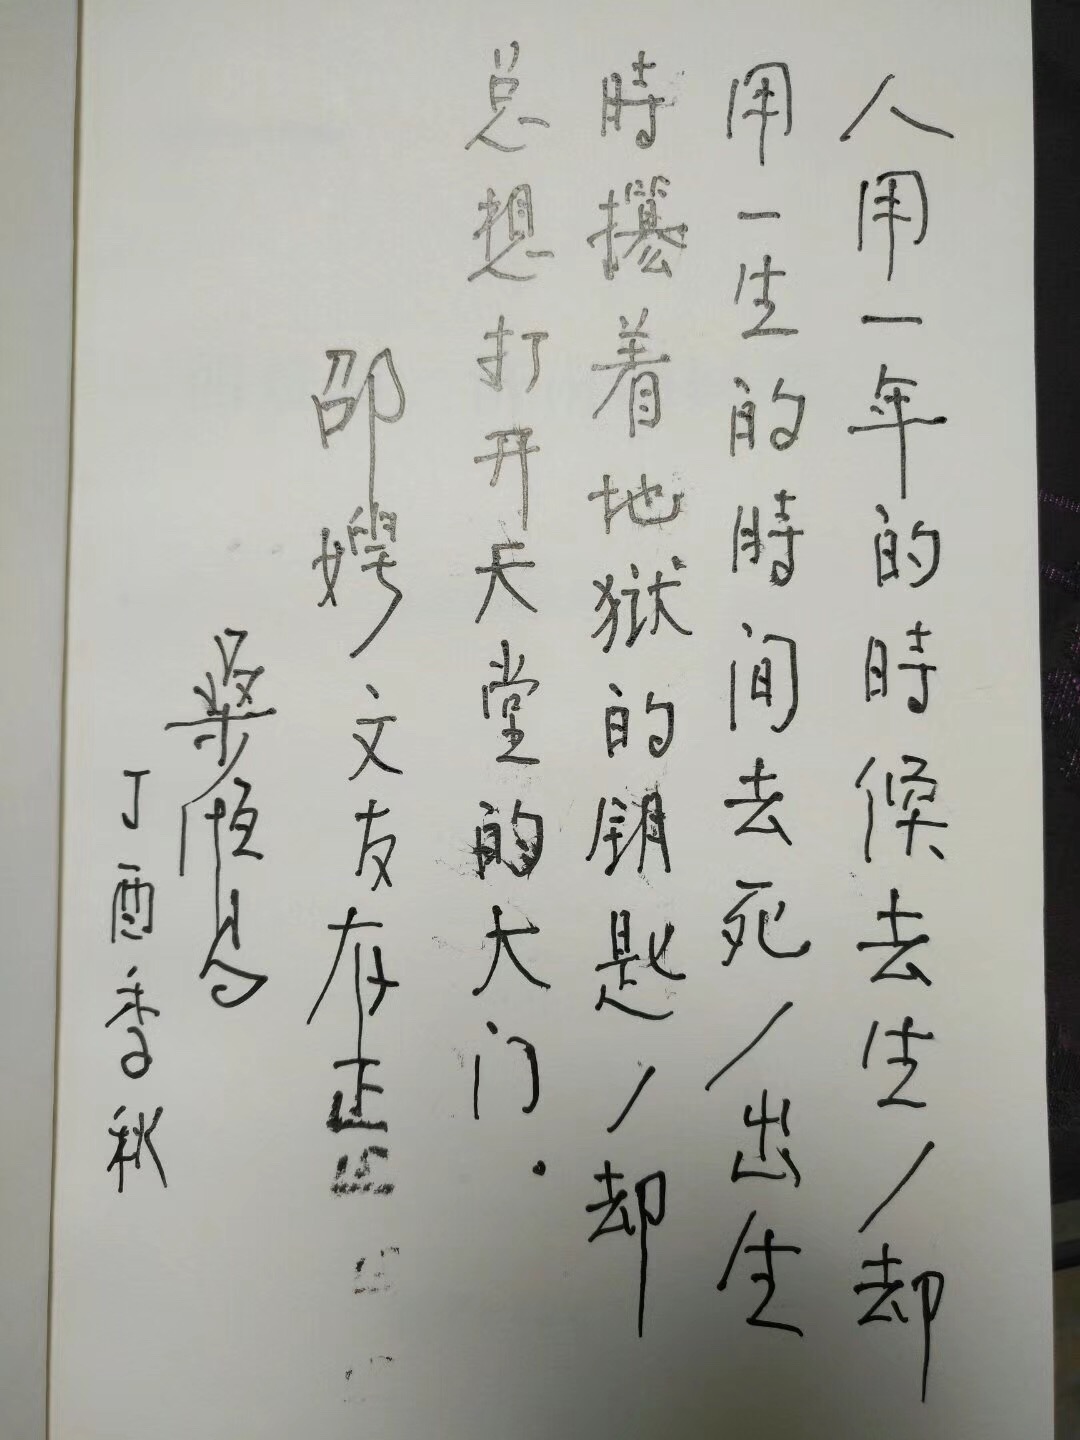 人用一年的時候去生/却
用一生的時间去死/出生
時攥着地狱的钥匙/却
总想打开天堂的大门.
邵娉文友存正
梁恒昌
丁酉季秋